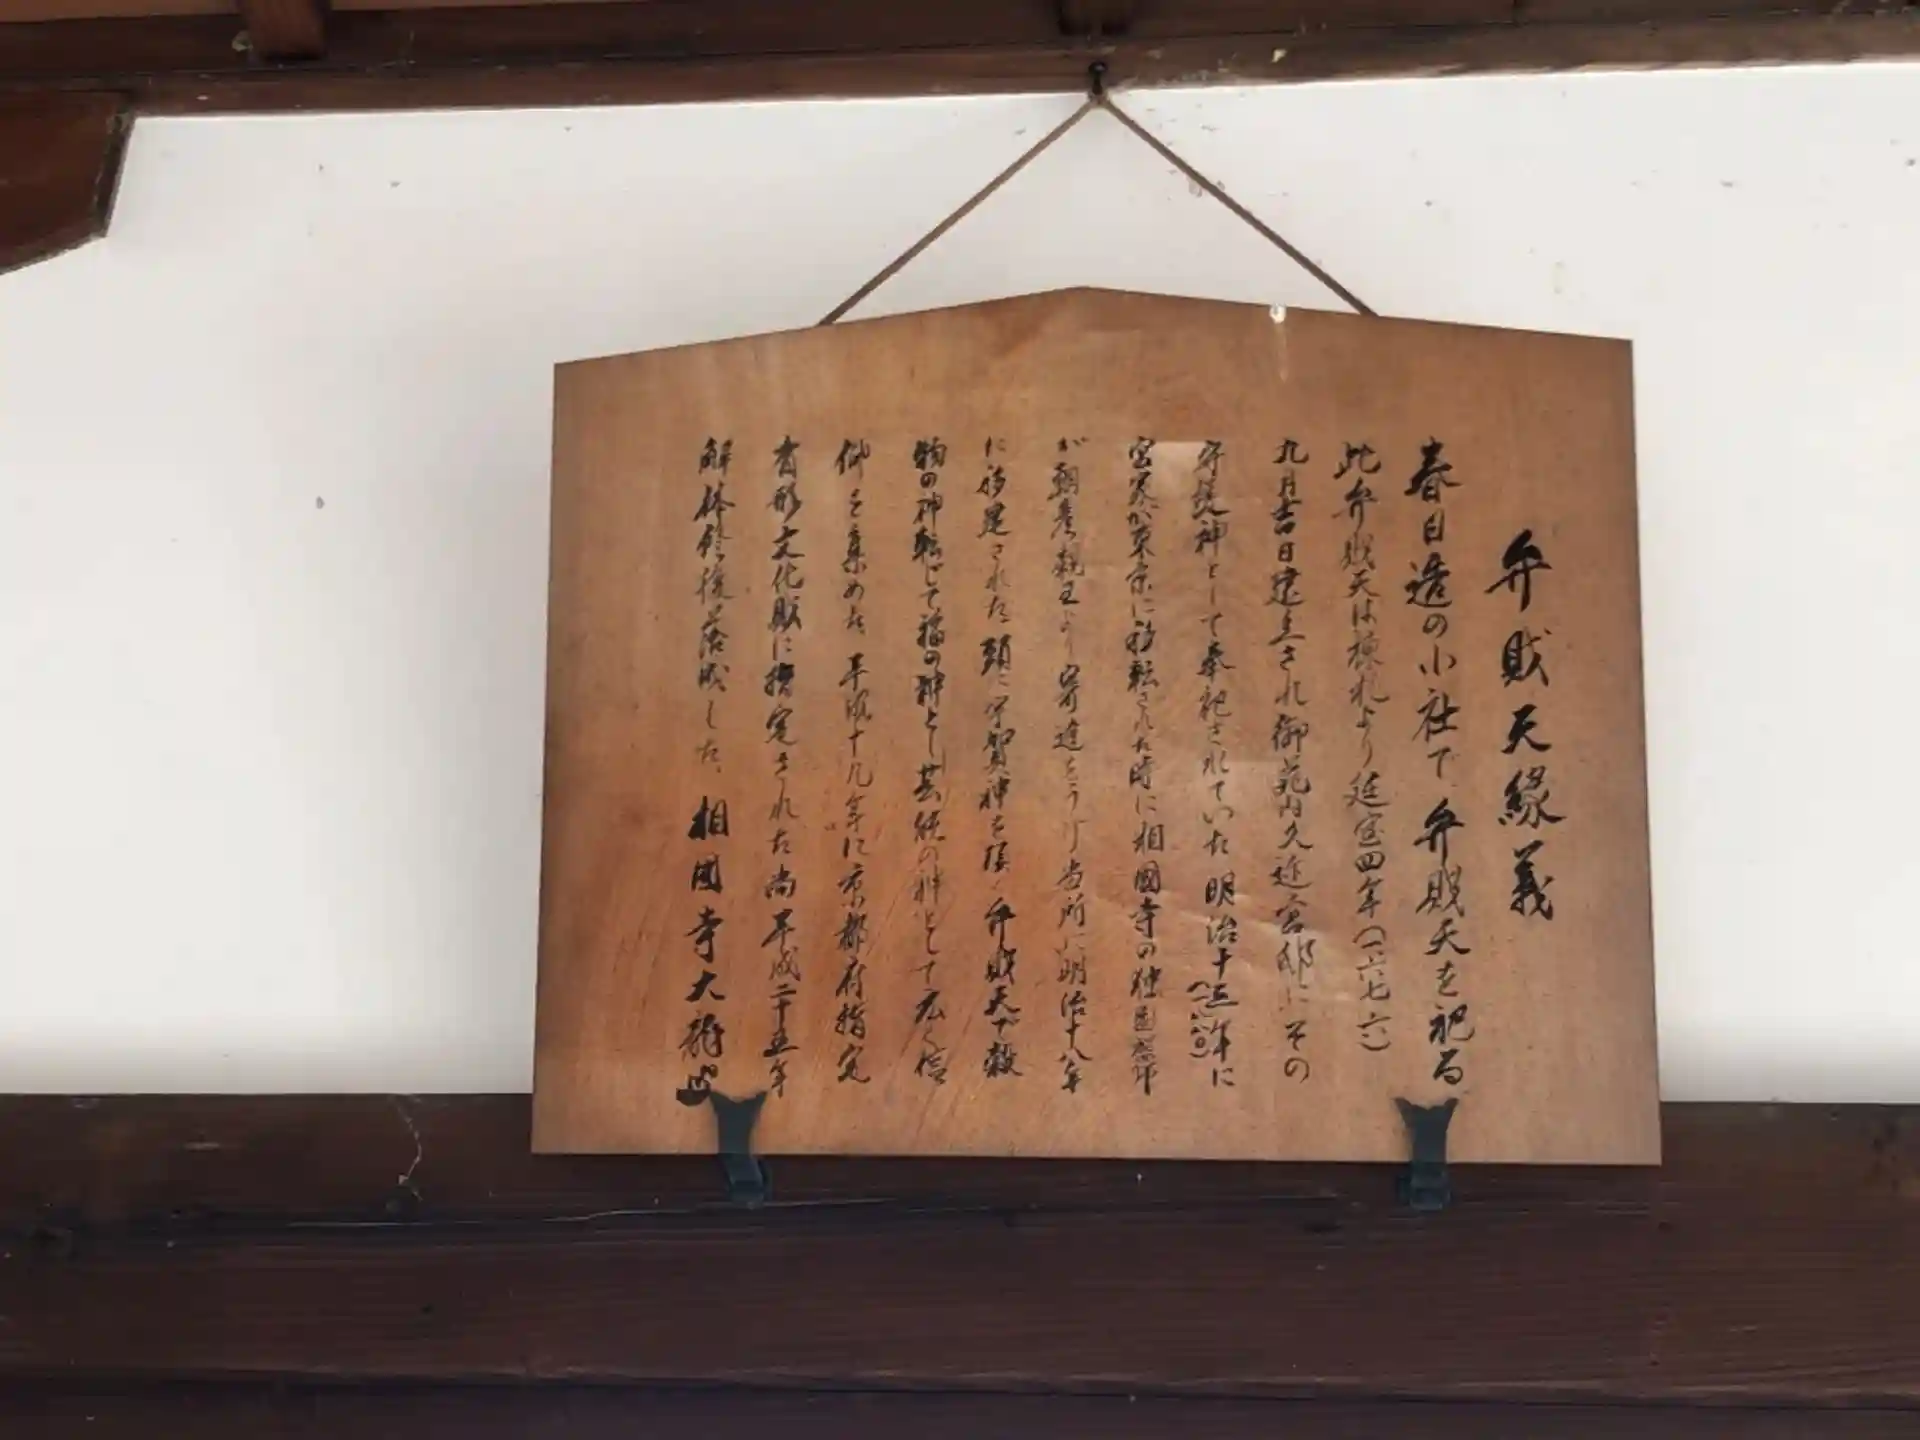 弁財天縁義
春日造の小社で弁財天を祀る
此弁財天は棟札より延宝四年(一六七六)
九月吉日建立され御苑内久迩宮邸にその
守護神として奉祀されていた明治十三年(一八八〇)に
宮家が東京に移転された時に相國寺の独園禅師
が朝彦親王より寄進をうけ当所に明治十八年
に移建された頭に宇賀神を頂く弁財天で穀
物の神転じて福の神とし芸能の神として広く信
仰を集めた、平成十九年に京都府指定
有形文化財に指定された尚平成二十五年
解体修復落成した、相國寺大龍